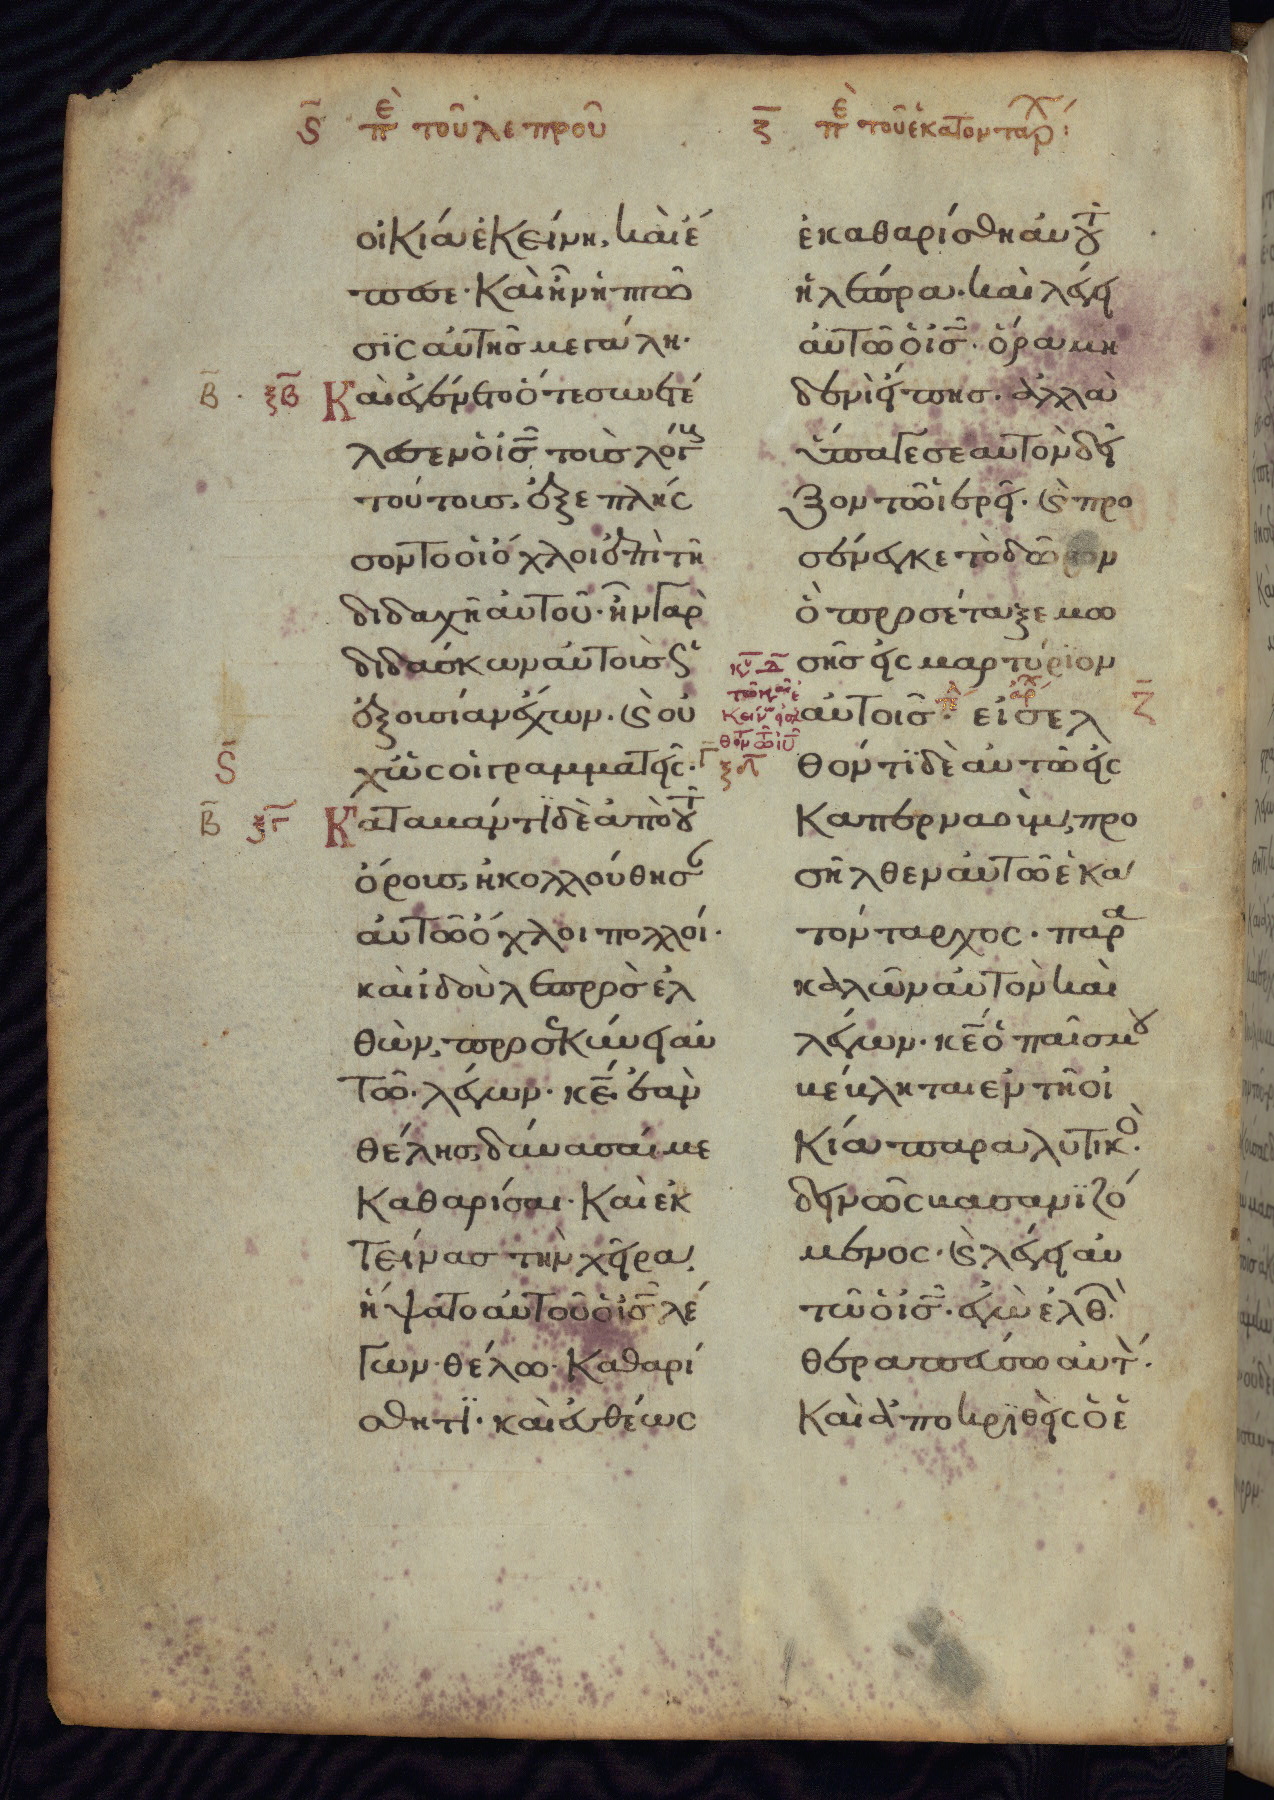 ς̄ πὲ τοῦ λεπροῦ
ζ̄ πὲ τοῦ ἑκατονταρχ
οἰκία ἐκείνη, καὶ ἔ
πεσε· καὶ ἦν ἡ πτῶ
σϊς αὐτῆσ μεγάλη·
Β̄ · ξβ̄ Καὶ ἐγένετο ὅτε συνετέ
λεσεν ὁ ἰσ̄ τοὺσ λόγους
τούτουσ, ἐξεπλήσ
σοντο οἱ ὄχλοι ἐπὶ τῆ
διδαχῆ αὐτοῦ· ἦν γὰρ
διδάσκων αὐτοὺσ ὡς
ἐξουσίαν ἔχων· καὶ οὐ
ς̄ χ' ὡς οἱ γραμματεῖς·
Β̄ ξγ̄ Καταβάντϊ δὲ ἀπὸ τοῦ
ὄρουσ, ἠκολλούθησαν
αὐτῶ ὄχλοι πολλοί·
καὶ ἰδοὺ λεπρὸσ ἐλ
θὼν, προσεκύνει αὐ
τῶ· λέγων· κε̄· ἐὰν
θέλησ, δύνασαί με
καθαρίσαι· καὶ ἐκ
τείνασ τὴν χεῖρα,
ἥψατο αὐτοῦ ὁ ἰσ̄ λέ
γων· θέλω· καθαρί
σθητϊ· καὶ εὐθέως
ἐκαθαρίσθη αὐτοῦ
ἡ λέπρα· καὶ λέγει
αὐτῶ ὁ ἰσ̄· ὅρα μη
δενὶ εἴπησ· ἀλλὰ
ὕπαγε σεαυτὸν δεῖ
ξον τῶ ἱερεῖ· καὶ προ
σένεγκε τὸ δῶρον
ὃ προσέταξε μω
σῆσ εἰς μαρτύρϊον
κυ̅ δ̅
τῶ καιρῶ ἐ
κείνω εἰσελ
θόντι τῶ ιυ̅
αὐτοῖσ· εἰσελ ζ̄
ξδ̄ θόντϊ δὲ αὐτῶ εἰς
καπερναοὺμ, προ
σῆλθεν αὐτῶ ἑκα
τόνταρχος· παρα
καλῶν αὐτὸν καὶ
λέγων· κε̄ ὁ παῖσ μου
βέβληται ἐν τῆ οἰ
κία παραλυτικὸς·
δεινῶς βασανϊζό
μενος· καὶ λέγει αὐ
τῶ ὁ ἰσ̄· ἐγὼ ἐλθὼν
θεραπεύσω αὐτὸν·
Καὶ ἀποκρϊθεὶς ὁ ἑ